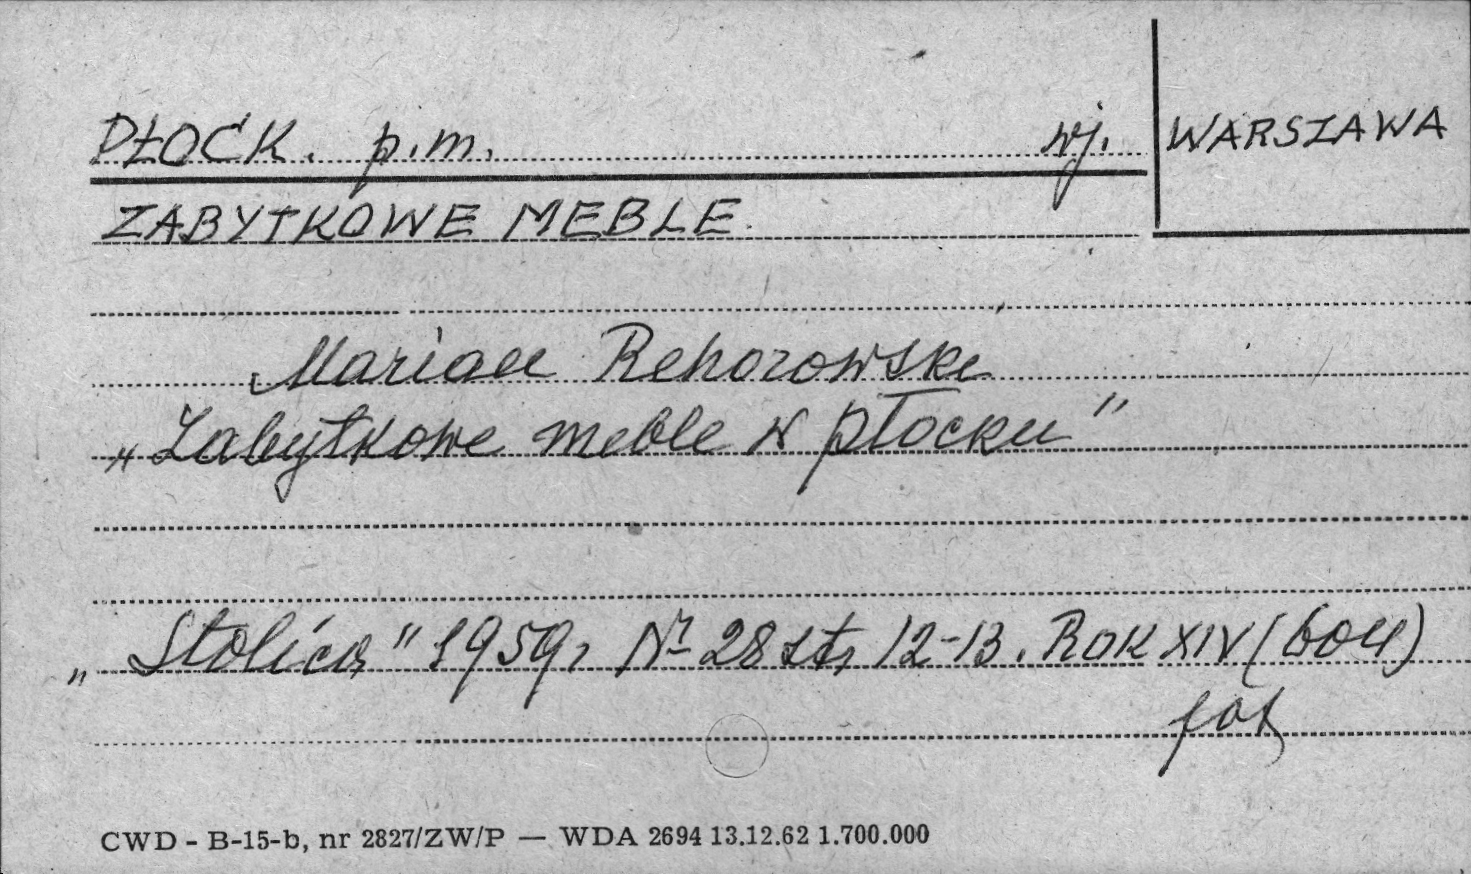 PŁOCK. p.m. wj. WARSZAWA
ZABYTKOWE MEBLE.
Marian Rehorowski
„Zabytkowe meble w Płocku”
„Stolica” 1959, Nr 28 str, 12-13. Rok XIV (604)
fot
CWD - B-15-b, nr 2827/ZW/P — WDA 2694 13.12.62 1.700.000